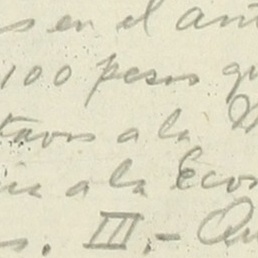 s en el ant
100 pesos qu
tavos a la M
a la Econ
s. III.- Qu